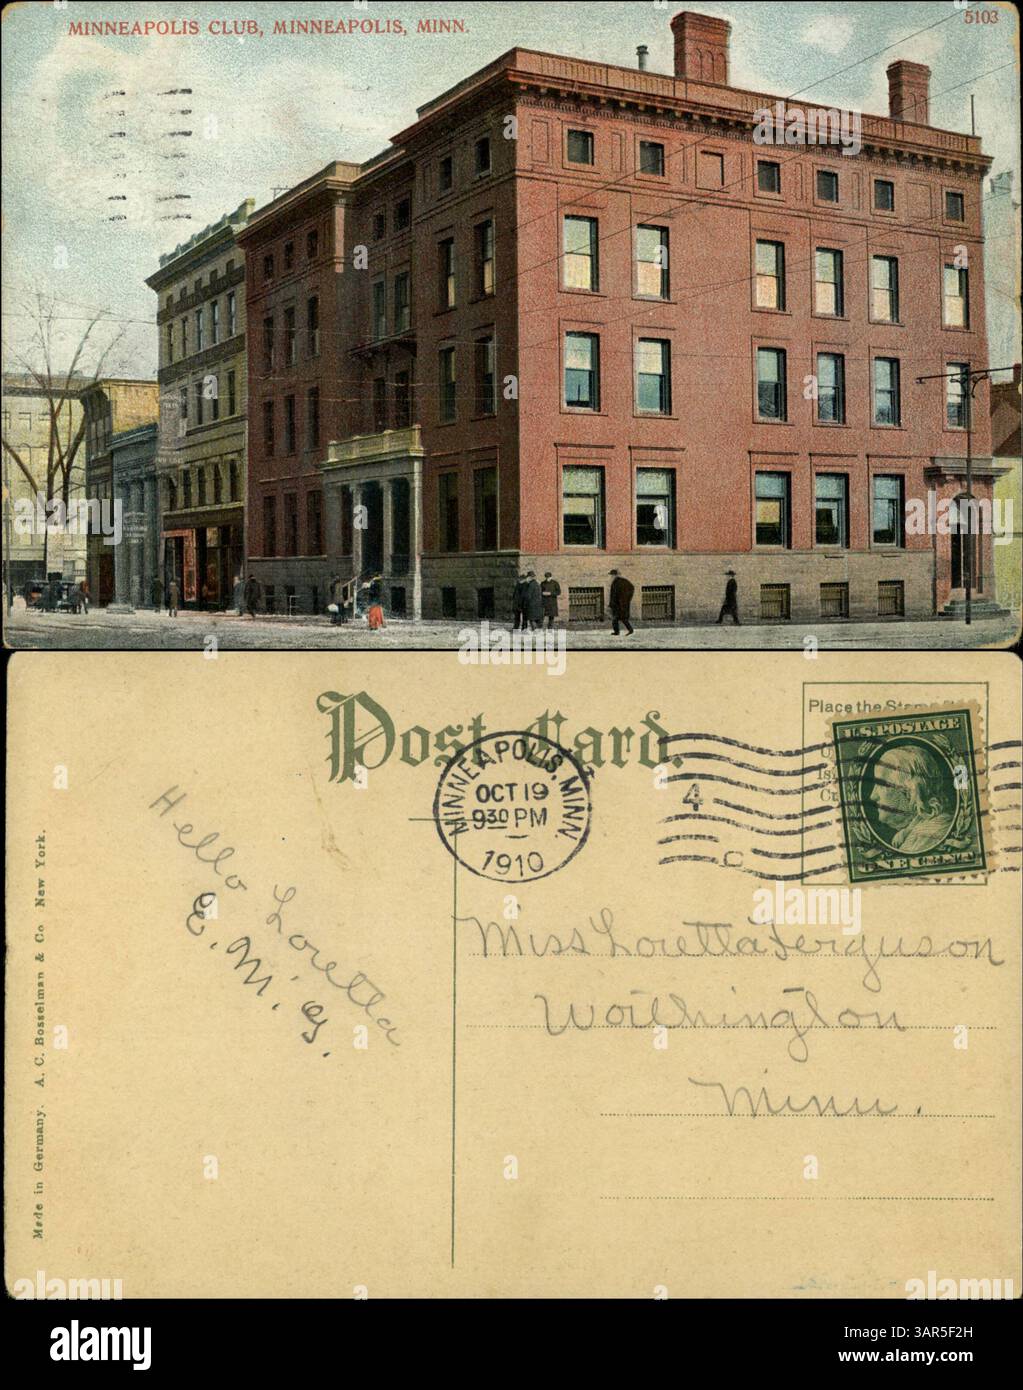 MINNEAPOLIS CLUB, MINNEAPOLIS, MINN.
5103
Post Card.
Place the Stamp
MINNEAPOLIS, MINN.
OCT 19
9 30 PM
1910
4
U.S. POSTAGE
ONE CENT
Hello Loretta
E. M. G.
Miss Loretta Ferguson
Worthington
Minn.
Made in Germany. A. C. Bosselman & Co. New York.
alamy
Image ID: 3AR5F2H
www.alamy.com